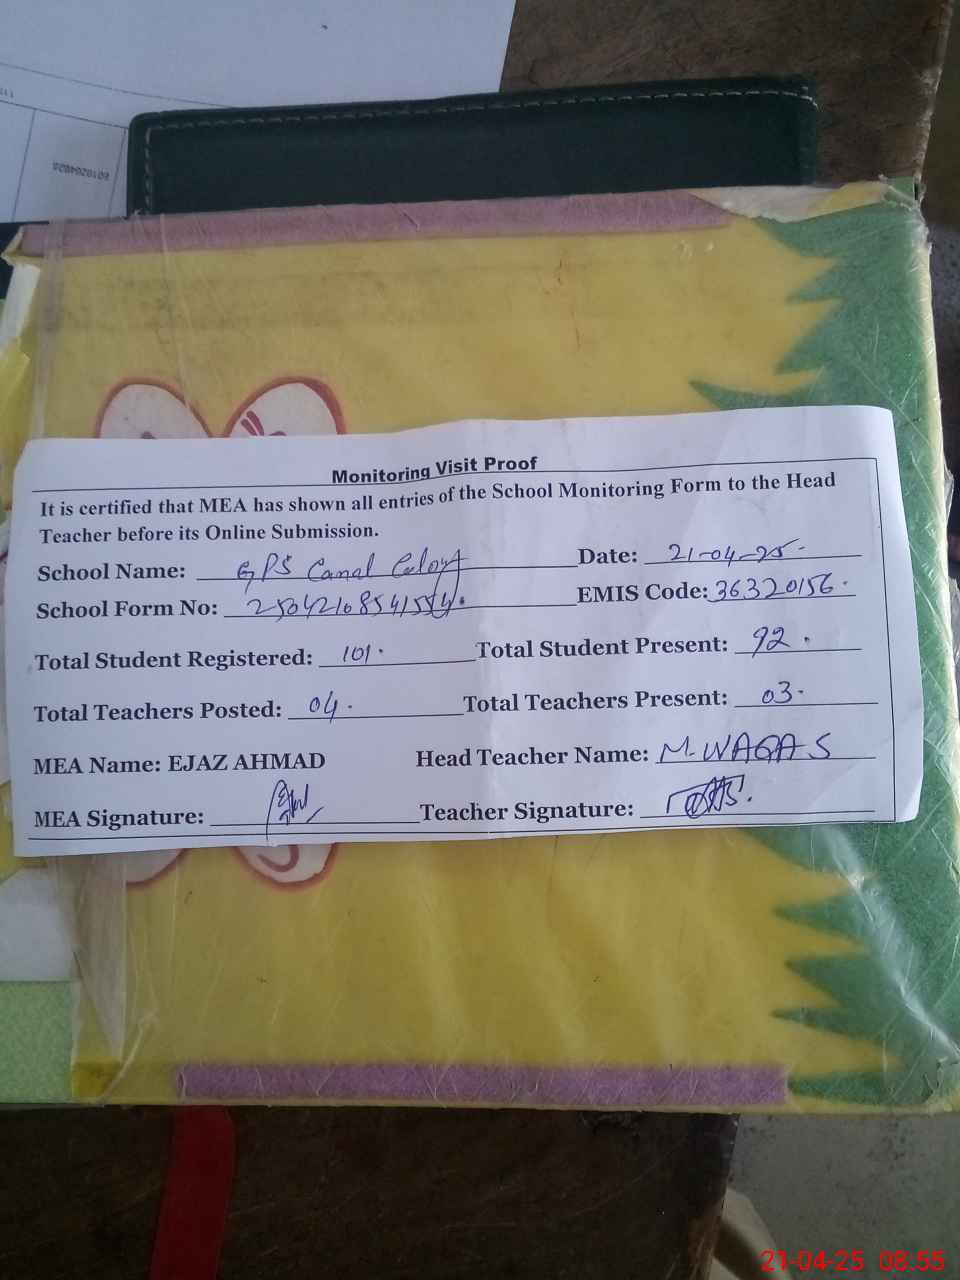 Monitoring Visit Proof
It is certified that MEA has shown all entries of the School Monitoring Form to the Head
Teacher before its Online Submission.
School Name: GPS Canal Colony Date: 21-04-25.
School Form No: EMIS Code: 36320156.
Total Student Registered: 101. Total Student Present: 92.
Total Teachers Posted: 04. Total Teachers Present: 03.
MEA Name: EJAZ AHMAD Head Teacher Name: M. WAQAS
MEA Signature: Teacher Signature:
21-04-25 08:55